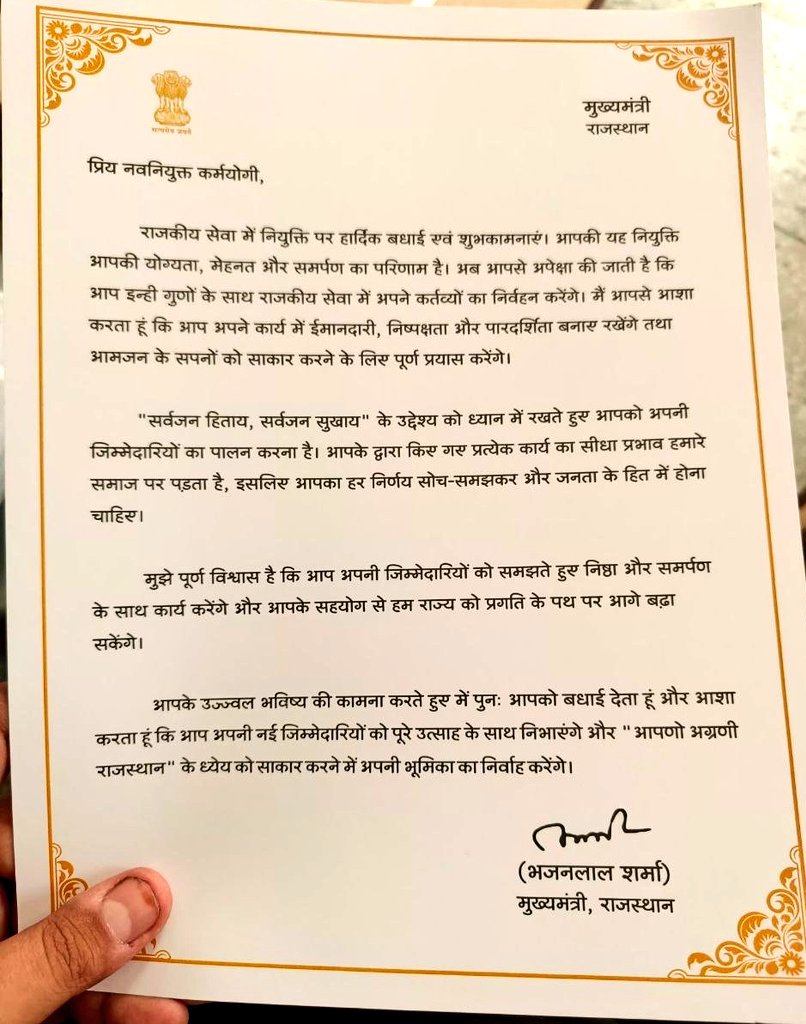 सत्यमेव जयते
मुख्यमंत्री
राजस्थान
प्रिय नवनियुक्त कर्मयोगी,
राजकीय सेवा में नियुक्ति पर हार्दिक बधाई एवं शुभकामनाएं। आपकी यह नियुक्ति
आपकी योग्यता, मेहनत और समर्पण का परिणाम है। अब आपसे अपेक्षा की जाती है कि
आप इन्ही गुणों के साथ राजकीय सेवा में अपने कर्तव्यों का निर्वहन करेंगे। मैं आपसे आशा
करता हूं कि आप अपने कार्य में ईमानदारी, निष्पक्षता और पारदर्शिता बनाए रखेंगे तथा
आमजन के सपनों को साकार करने के लिए पूर्ण प्रयास करेंगे।
"सर्वजन हिताय, सर्वजन सुखाय" के उद्देश्य को ध्यान में रखते हुए आपको अपनी
जिम्मेदारियों का पालन करना है। आपके द्वारा किए गए प्रत्येक कार्य का सीधा प्रभाव हमारे
समाज पर पड़ता है, इसलिए आपका हर निर्णय सोच-समझकर और जनता के हित में होना
चाहिए।
मुझे पूर्ण विश्वास है कि आप अपनी जिम्मेदारियों को समझते हुए निष्ठा और समर्पण
के साथ कार्य करेंगे और आपके सहयोग से हम राज्य को प्रगति के पथ पर आगे बढ़ा
सकेंगे।
आपके उज्ज्वल भविष्य की कामना करते हुए में पुनः आपको बधाई देता हूं और आशा
करता हूं कि आप अपनी नई जिम्मेदारियों को पूरे उत्साह के साथ निभाएंगे और "आपणो अग्रणी
राजस्थान" के ध्येय को साकार करने में अपनी भूमिका का निर्वाह करेंगे।
(भजनलाल शर्मा)
मुख्यमंत्री, राजस्थान